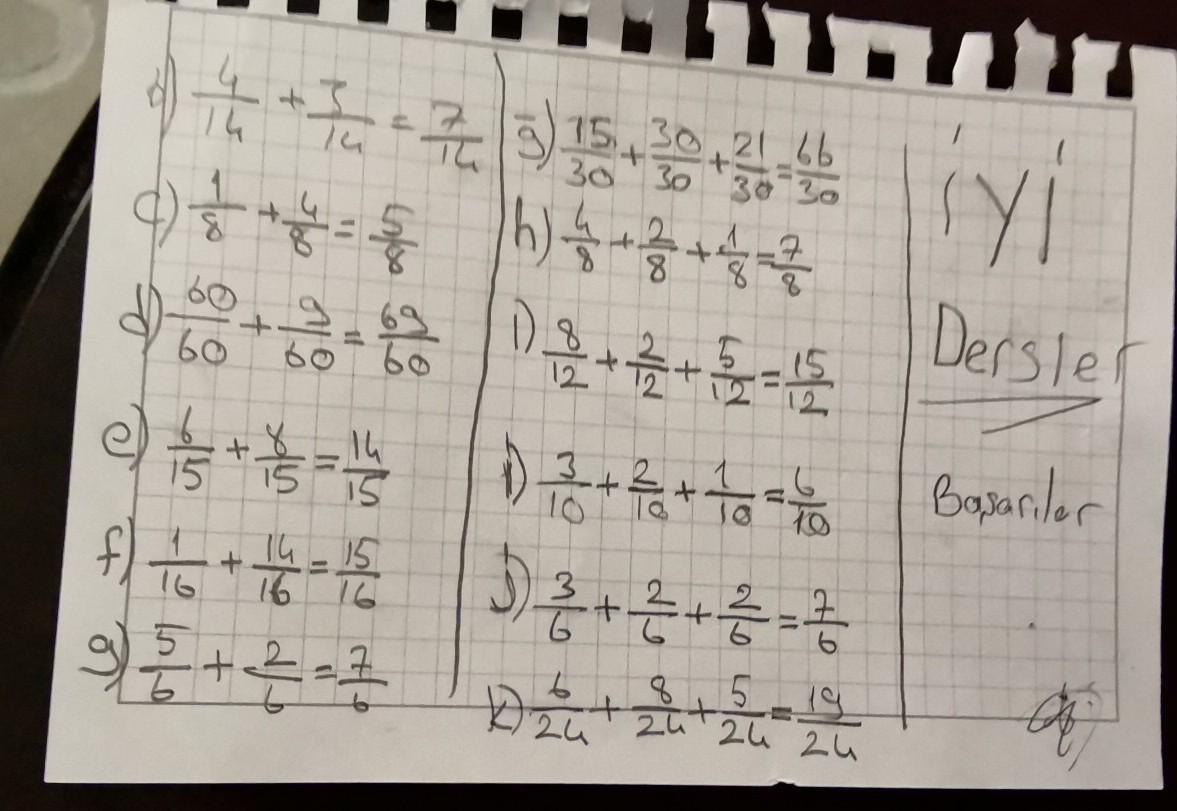 ç) 4/14 + 3/14 = 7/14
c) 1/8 + 4/8 = 5/8
d) 60/60 + 9/60 = 69/60
e) 6/15 + 8/15 = 14/15
f) 1/16 + 14/16 = 15/16
g) 5/6 + 2/6 = 7/6
ğ) 15/30 + 30/30 + 21/30 = 66/30
h) 4/8 + 2/8 + 1/8 = 7/8
ı) 8/12 + 2/12 + 5/12 = 15/12
i) 3/10 + 2/10 + 1/10 = 6/10
j) 3/6 + 2/6 + 2/6 = 7/6
k) 6/24 + 8/24 + 5/24 = 19/24
iyi
Dersler
Başarılar